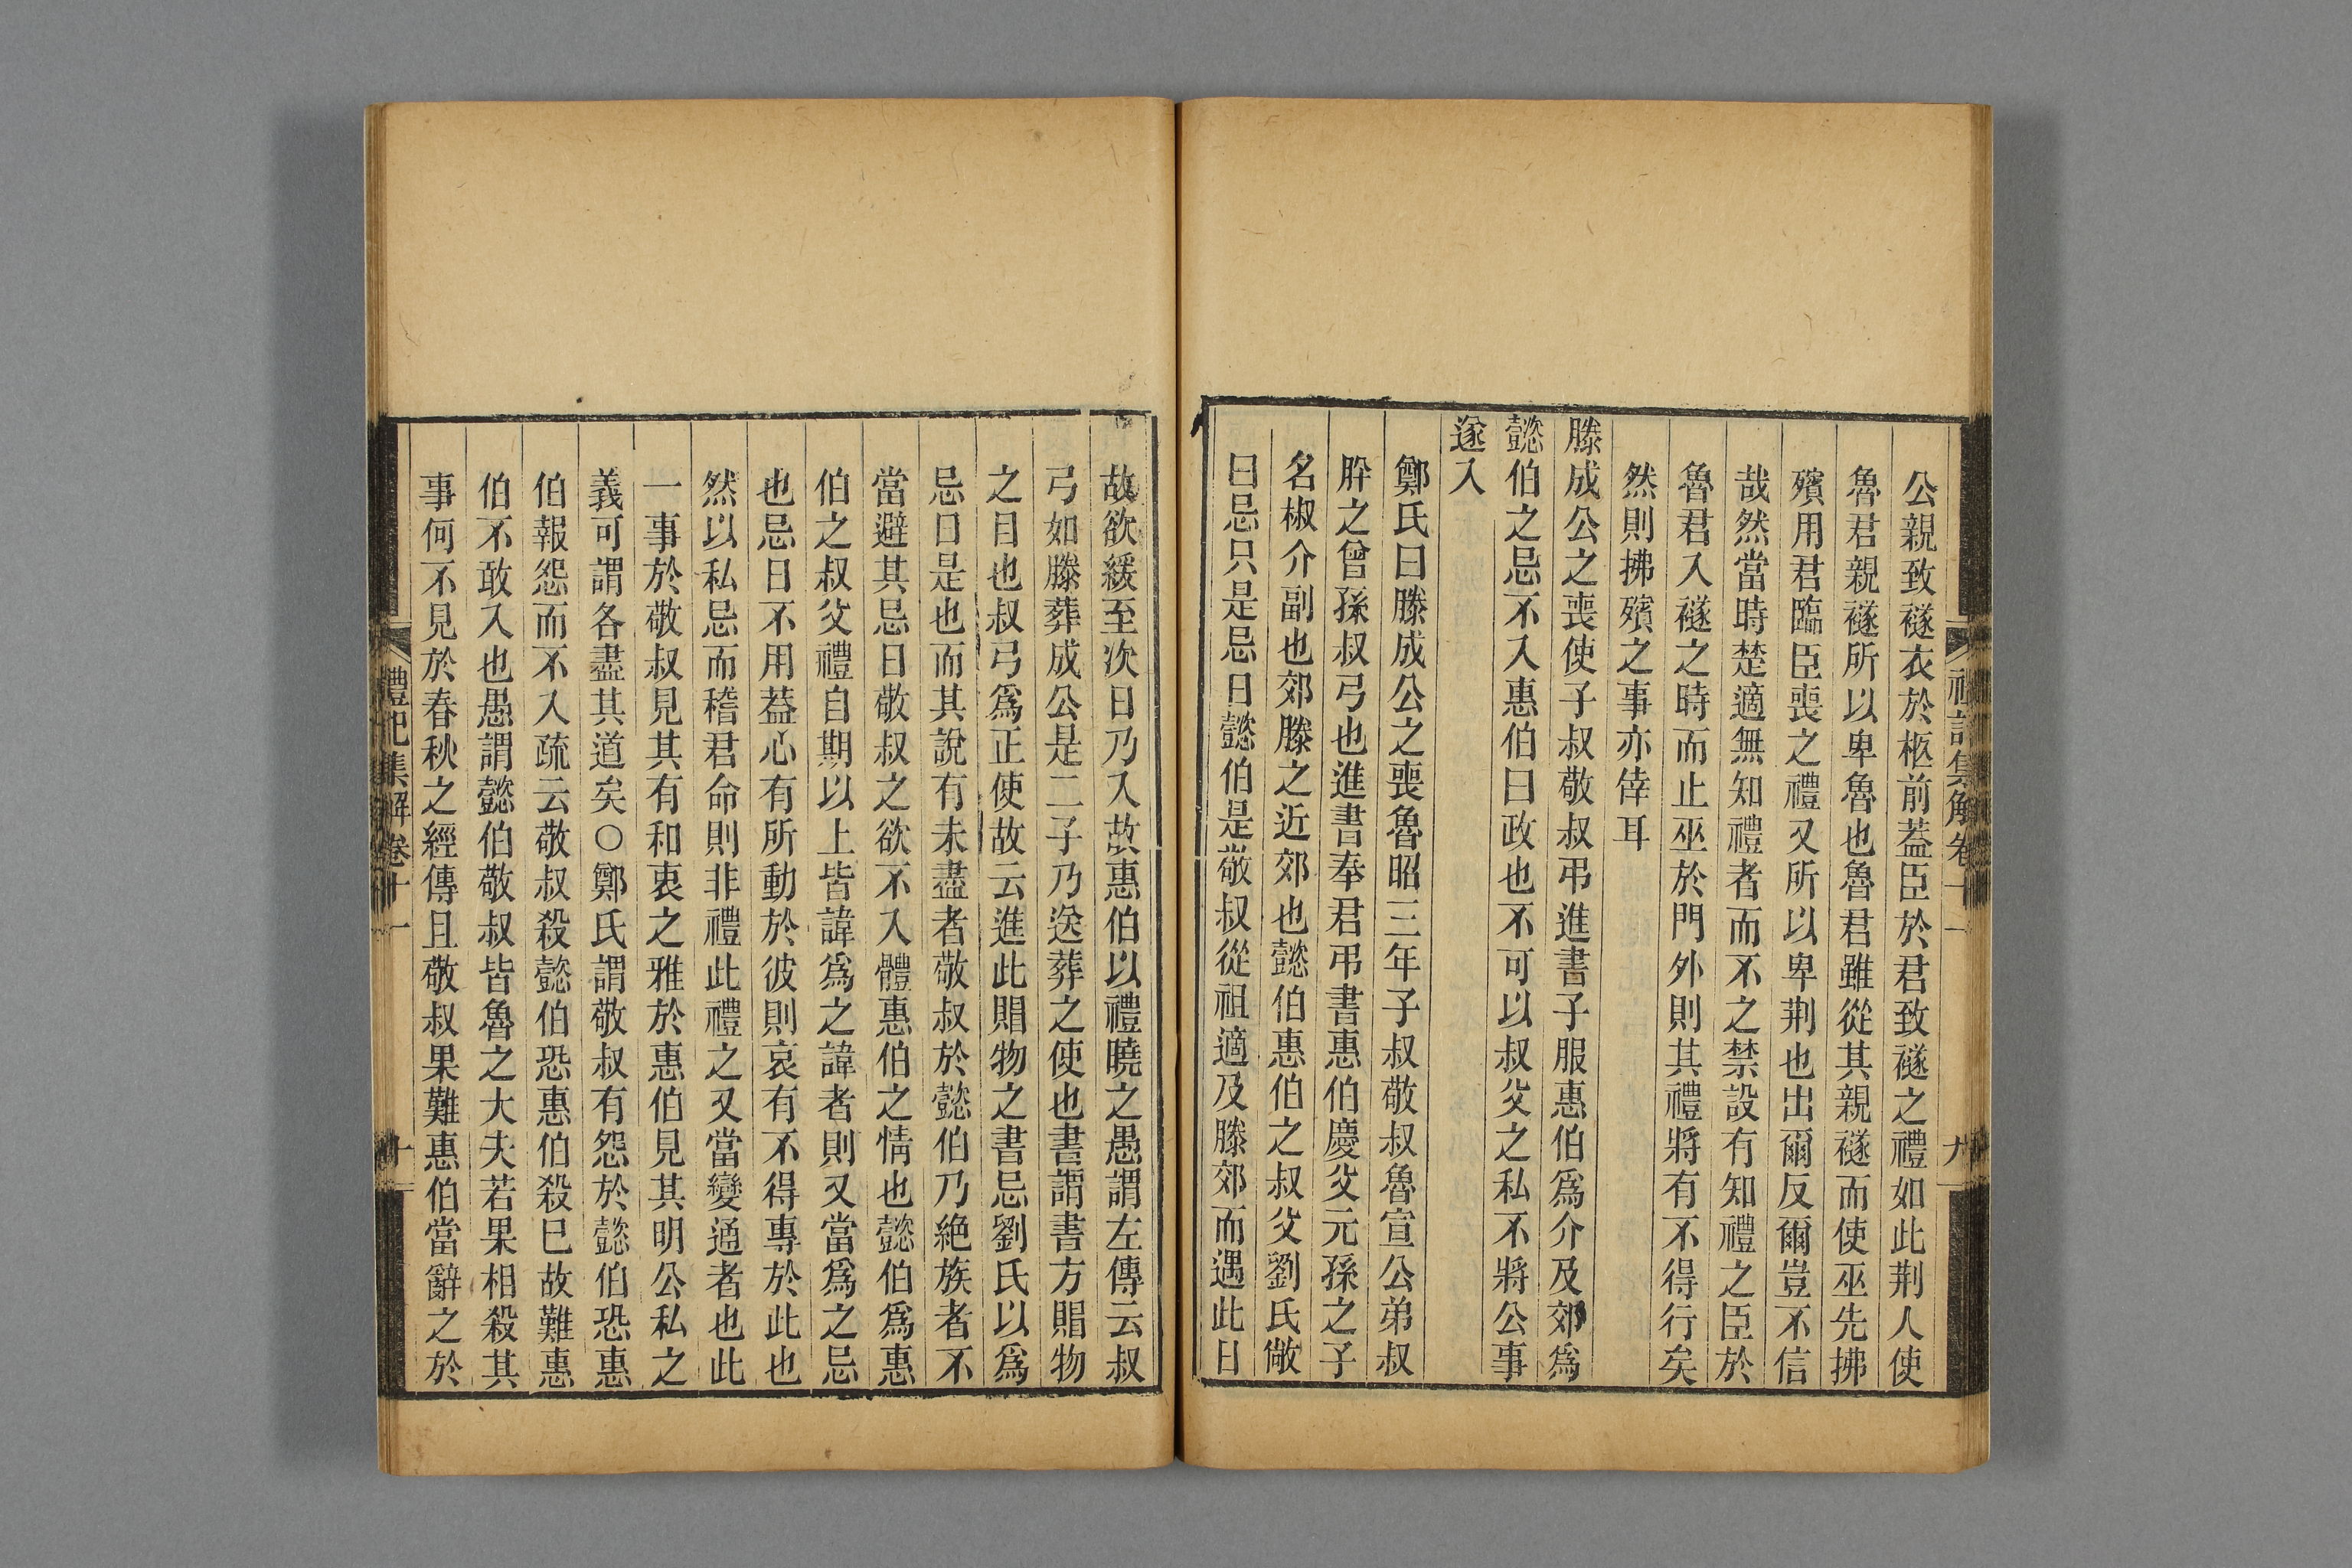 公親致襚衣於柩前葢臣於君致襚之禮如此荆人使
魯君親襚所以卑魯也魯君雖從其親襚而使巫先拂
殯用君臨臣喪之禮又所以卑荆也出爾反爾豈不信
哉然當時楚適無知禮者而不之禁設有知禮之臣於
魯君入襚之時而止巫於門外則其禮將有不得行矣
然則拂殯之事亦倖耳
滕成公之喪使子叔敬叔弔進書子服惠伯爲介及郊爲
懿伯之忌不入惠伯曰政也不可以叔父之私不將公事
遂入
鄭氏曰滕成公之喪魯昭三年子叔敬叔魯宣公弟叔
肸之曾孫叔弓也進書奉君弔書惠伯慶父元孫之子
名椒介副也郊滕之近郊也懿伯惠伯之叔父劉氏敞
曰忌只是忌日懿伯是敬叔從祖適及滕郊而遇此日
故欲緩至次日乃入故惠伯以禮曉之愚謂左傳云叔
弓如滕葬成公是二子乃送葬之使也書謂書方賵物
之目也叔弓爲正使故云進此賵物之書忌劉氏以爲
忌日是也而其說有未盡者敬叔於懿伯乃絶族者不
當避其忌日敬叔之欲不入體惠伯之情也懿伯爲惠
伯之叔父禮自期以上皆諱爲之諱者則又當爲之忌
也忌日不用葢心有所動於彼則哀有不得專於此也
然以私忌而稽君命則非禮此禮之又當變通者也此
一事於敬叔見其有和衷之雅於惠伯見其明公私之
義可謂各盡其道矣○鄭氏謂敬叔有怨於懿伯恐惠
伯報怨而不入疏云敬叔殺懿伯恐惠伯殺巳故難惠
伯不敢入也愚謂懿伯敬叔皆魯之大夫若果相殺其
事何不見於春秋之經傳且敬叔果難惠伯當辭之於
禮記集解卷十一
十